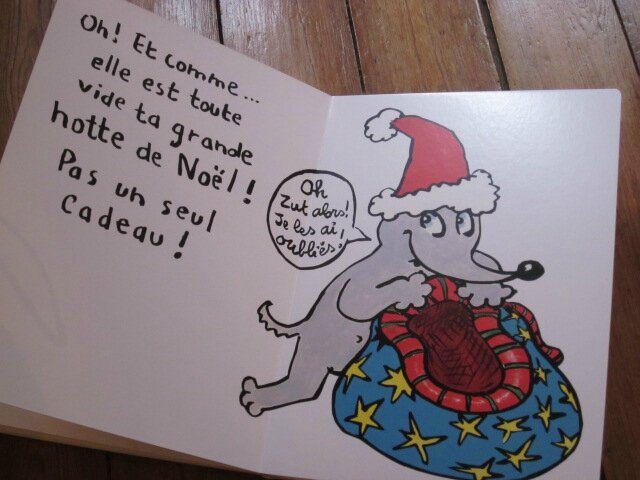 Oh! Et comme...
elle est toute
vide ta grande
hotte de Noël!
Pas un seul
cadeau!
Oh
Zut alors!
Je les ai
oubliés!